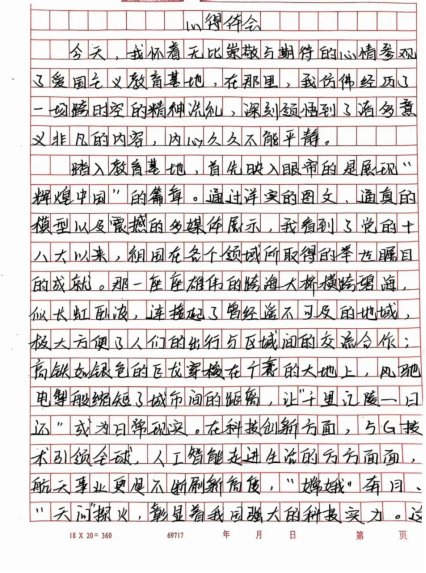 心得体会
今天，我怀着无比崇敬与期待的心情参观
了爱国主义教育基地，在那里，我仿佛经历了
一场跨时空的精神洗礼，深刻领悟到了诸多意
义非凡的内容，内心久久不能平静。
踏入教育基地，首先映入眼帘的是展现“
辉煌中国”的篇章。通过详实的图文、逼真的
模型以及震撼的多媒体展示，我看到了党的十
八大以来，祖国在各个领域所取得的举世瞩目
的成就。那一座座雄伟的跨海大桥横跨碧海，
似长虹卧波，连接起了曾经遥不可及的地域，
极大方便了人们的出行与区域间的交流合作；
高铁如银色的巨龙穿梭在广袤的大地上，风驰
电掣般缩短了城市间的距离，让“千里江陵一日
还”成为日常现实。在科技创新方面，5G技
术引领全球，人工智能走进生活的方方面面，
航天事业更是不断刷新高度，“嫦娥”奔月、
“天问”探火，彰显着我国强大的科技实力。这
18 X 20 = 360 69717 年 月 日 第 页